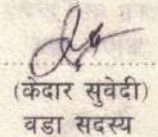 (केदार सुवेदी)
वडा सदस्य